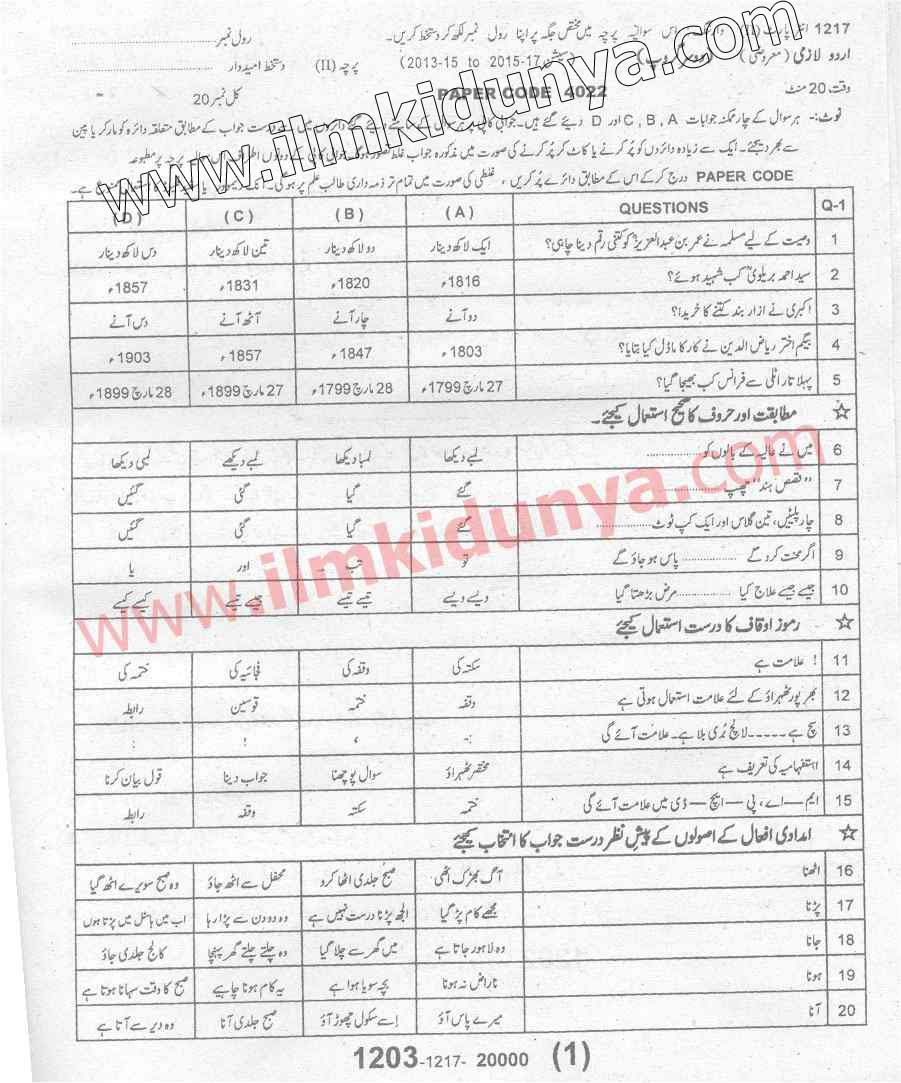 1217 انٹر پارٹ (II) وارننگ۔ اس سوالیہ پرچہ میں مختص جگہ پر اپنا رول نمبر لکھ کر دستخط کریں۔ رول نمبر
اردو لازمی (معروضی) (دوسرا گروپ) (سیشن 2013-15 to 2015-17) پرچہ (II) دستخط امیدوار
وقت 20 منٹ PAPER CODE 4022 کل نمبر 20
نوٹ:- ہر سوال کے چار ممکنہ جوابات C , B , A اور D دیئے گئے ہیں۔ جوابی کاپی پر ہر سوال کے سامنے دیئے گئے دائروں میں سے درست جواب کے مطابق متعلقہ دائرہ کو مارکر یا پین
سے بھر دیجئے۔ ایک سے زیادہ دائروں کو پُر کرنے یا کاٹ کر پُر کرنے کی صورت میں مذکورہ جواب غلط تصور ہوگا۔ جوابی کاپی کے دونوں اطراف پرچہ پر مطبوعہ
PAPER CODE درج کر کے اس کے مطابق دائرے پُر کریں ، غلطی کی صورت میں تمام تر ذمہ داری طالب علم پر ہوگی۔
www.ilmkidunya.com
Q-1 QUESTIONS (A) (B) (C) (D)
1 وصیت کے لیے مسلمہ نے عمر بن عبدالعزیزؒ کو کتنی رقم دینا چاہی؟ ایک لاکھ دینار دو لاکھ دینار تین لاکھ دینار دس لاکھ دینار
2 سید احمد بریلویؒ کب شہید ہوئے؟ 1816ء 1820ء 1831ء 1857ء
3 اکبری نے ازار بند کتنے کا خریدا؟ دو آنے چار آنے آٹھ آنے دس آنے
4 بیگم اختر ریاض الدین نے کار کا ماڈل کیا بتایا؟ 1803ء 1847ء 1857ء 1903ء
5 پہلا تار اٹلی سے فرانس کب بھیجا گیا؟ 27 مارچ 1799ء 28 مارچ 1799ء 27 مارچ 1899ء 28 مارچ 1899ء
☆ مطابقت اور حروف کا صحیح استعمال کیجئے۔
6 میں نے عالیہ کے بالوں کو .................. لمبے دیکھا لمبا دیکھا لمبے دیکھے لمبی دیکھا
7 ’’قصص ہند‘‘ چھپ .................. گئے گیا گئی گئیں
8 چار پلیٹیں، تین گلاس اور ایک کپ ٹوٹ .................. گئے گیا گئی گئیں
9 اگر محنت کرو گے .................. پاس ہو جاؤ گے تو تب اور یا
10 جیسے جیسے علاج کیا .................. مرض بڑھتا گیا ویسے ویسے تیسے تیسے جیسے تیسے کیسے کیسے
www.ilmkidunya.com
☆ رموز اوقاف کا درست استعمال کیجئے
11 ! علامت ہے سکتہ کی وقفہ کی فجائیہ کی ختمہ کی
12 بھرپور ٹھہراؤ کے لئے علامت استعمال ہوتی ہے وقفہ ختمہ قوسین رابطہ
13 سچ ہے ۔۔۔۔۔ لالچ بُری بلا ہے۔ علامت آئے گی :- ، ! :
14 استفہامیہ کی تعریف ہے مختصر ٹھہراؤ سوال پوچھنا جواب دینا قول بیان کرنا
15 ایم—اے، پی—ایچ—ڈی میں علامت آئے گی ختمہ سکتہ وقفہ رابطہ
☆ امدادی افعال کے اصولوں کے پیشِ نظر درست جواب کا انتخاب کیجئے
16 اٹھنا آگ بھڑک اٹھی صبح جلدی اٹھا کرو محفل سے اٹھ جاؤ وہ صبح سویرے اٹھ گیا
17 پڑنا مجھے کام پڑ گیا الجھ پڑنا درست نہیں ہے وہ دو دن سے پڑا رہا اب میں ہاسٹل میں پڑتا ہوں
18 جانا وہ لاہور جاتا ہے میں گھر سے چلا گیا وہ چلتے چلتے گھر پہنچا کالج جلدی جاؤ
19 ہونا ناراض نہ ہونا بچہ سویا ہوا ہے یہ کام ہونا چاہیے صبح کا وقت سہانا ہوتا ہے
20 آنا میرے پاس آؤ اِسے سکول چھوڑ آؤ صبح جلدی آنا وہ دیر سے آتا ہے
1203-1217- 20000 (1)